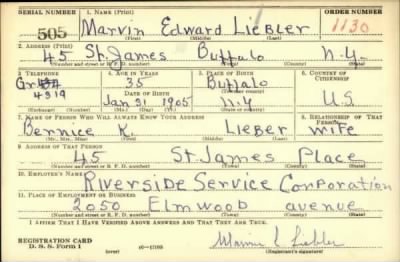 SERIAL NUMBER 1. NAME (Print) ORDER NUMBER
505 Marvin Edward Liebler 1130
(First) (Middle) (Last)
2. ADDRESS (Print)
45 St. James Buffalo N.Y.
(Number and street or R. F. D. number) (Town) (County) (State)
3. TELEPHONE 4. AGE IN YEARS 5. PLACE OF BIRTH 6. COUNTRY OF CITIZENSHIP
Gr 35 Buffalo
DATE OF BIRTH (Town or county)
4319 Jan 31 1905 N.Y. U.S.
(Exchange) (Number) (Mo.) (Day) (Yr.) (State or country)
7. NAME OF PERSON WHO WILL ALWAYS KNOW YOUR ADDRESS 8. RELATIONSHIP OF THAT PERSON
Bernice K. Lieber wife
(Mr., Mrs., Miss) (First) (Middle) (Last)
9. ADDRESS OF THAT PERSON
45 St. James Place
(Number and street or R. F. D. number) (Town) (County) (State)
10. EMPLOYER'S NAME
Riverside Service Corporation
11. PLACE OF EMPLOYMENT OR BUSINESS
2050 Elmwood avenue
(Number and street or R. F. D. number) (Town) (County) (State)
I AFFIRM THAT I HAVE VERIFIED ABOVE ANSWERS AND THAT THEY ARE TRUE.
REGISTRATION CARD
D. S. S. Form 1 (over) 16—17105 (Registrant's signature)